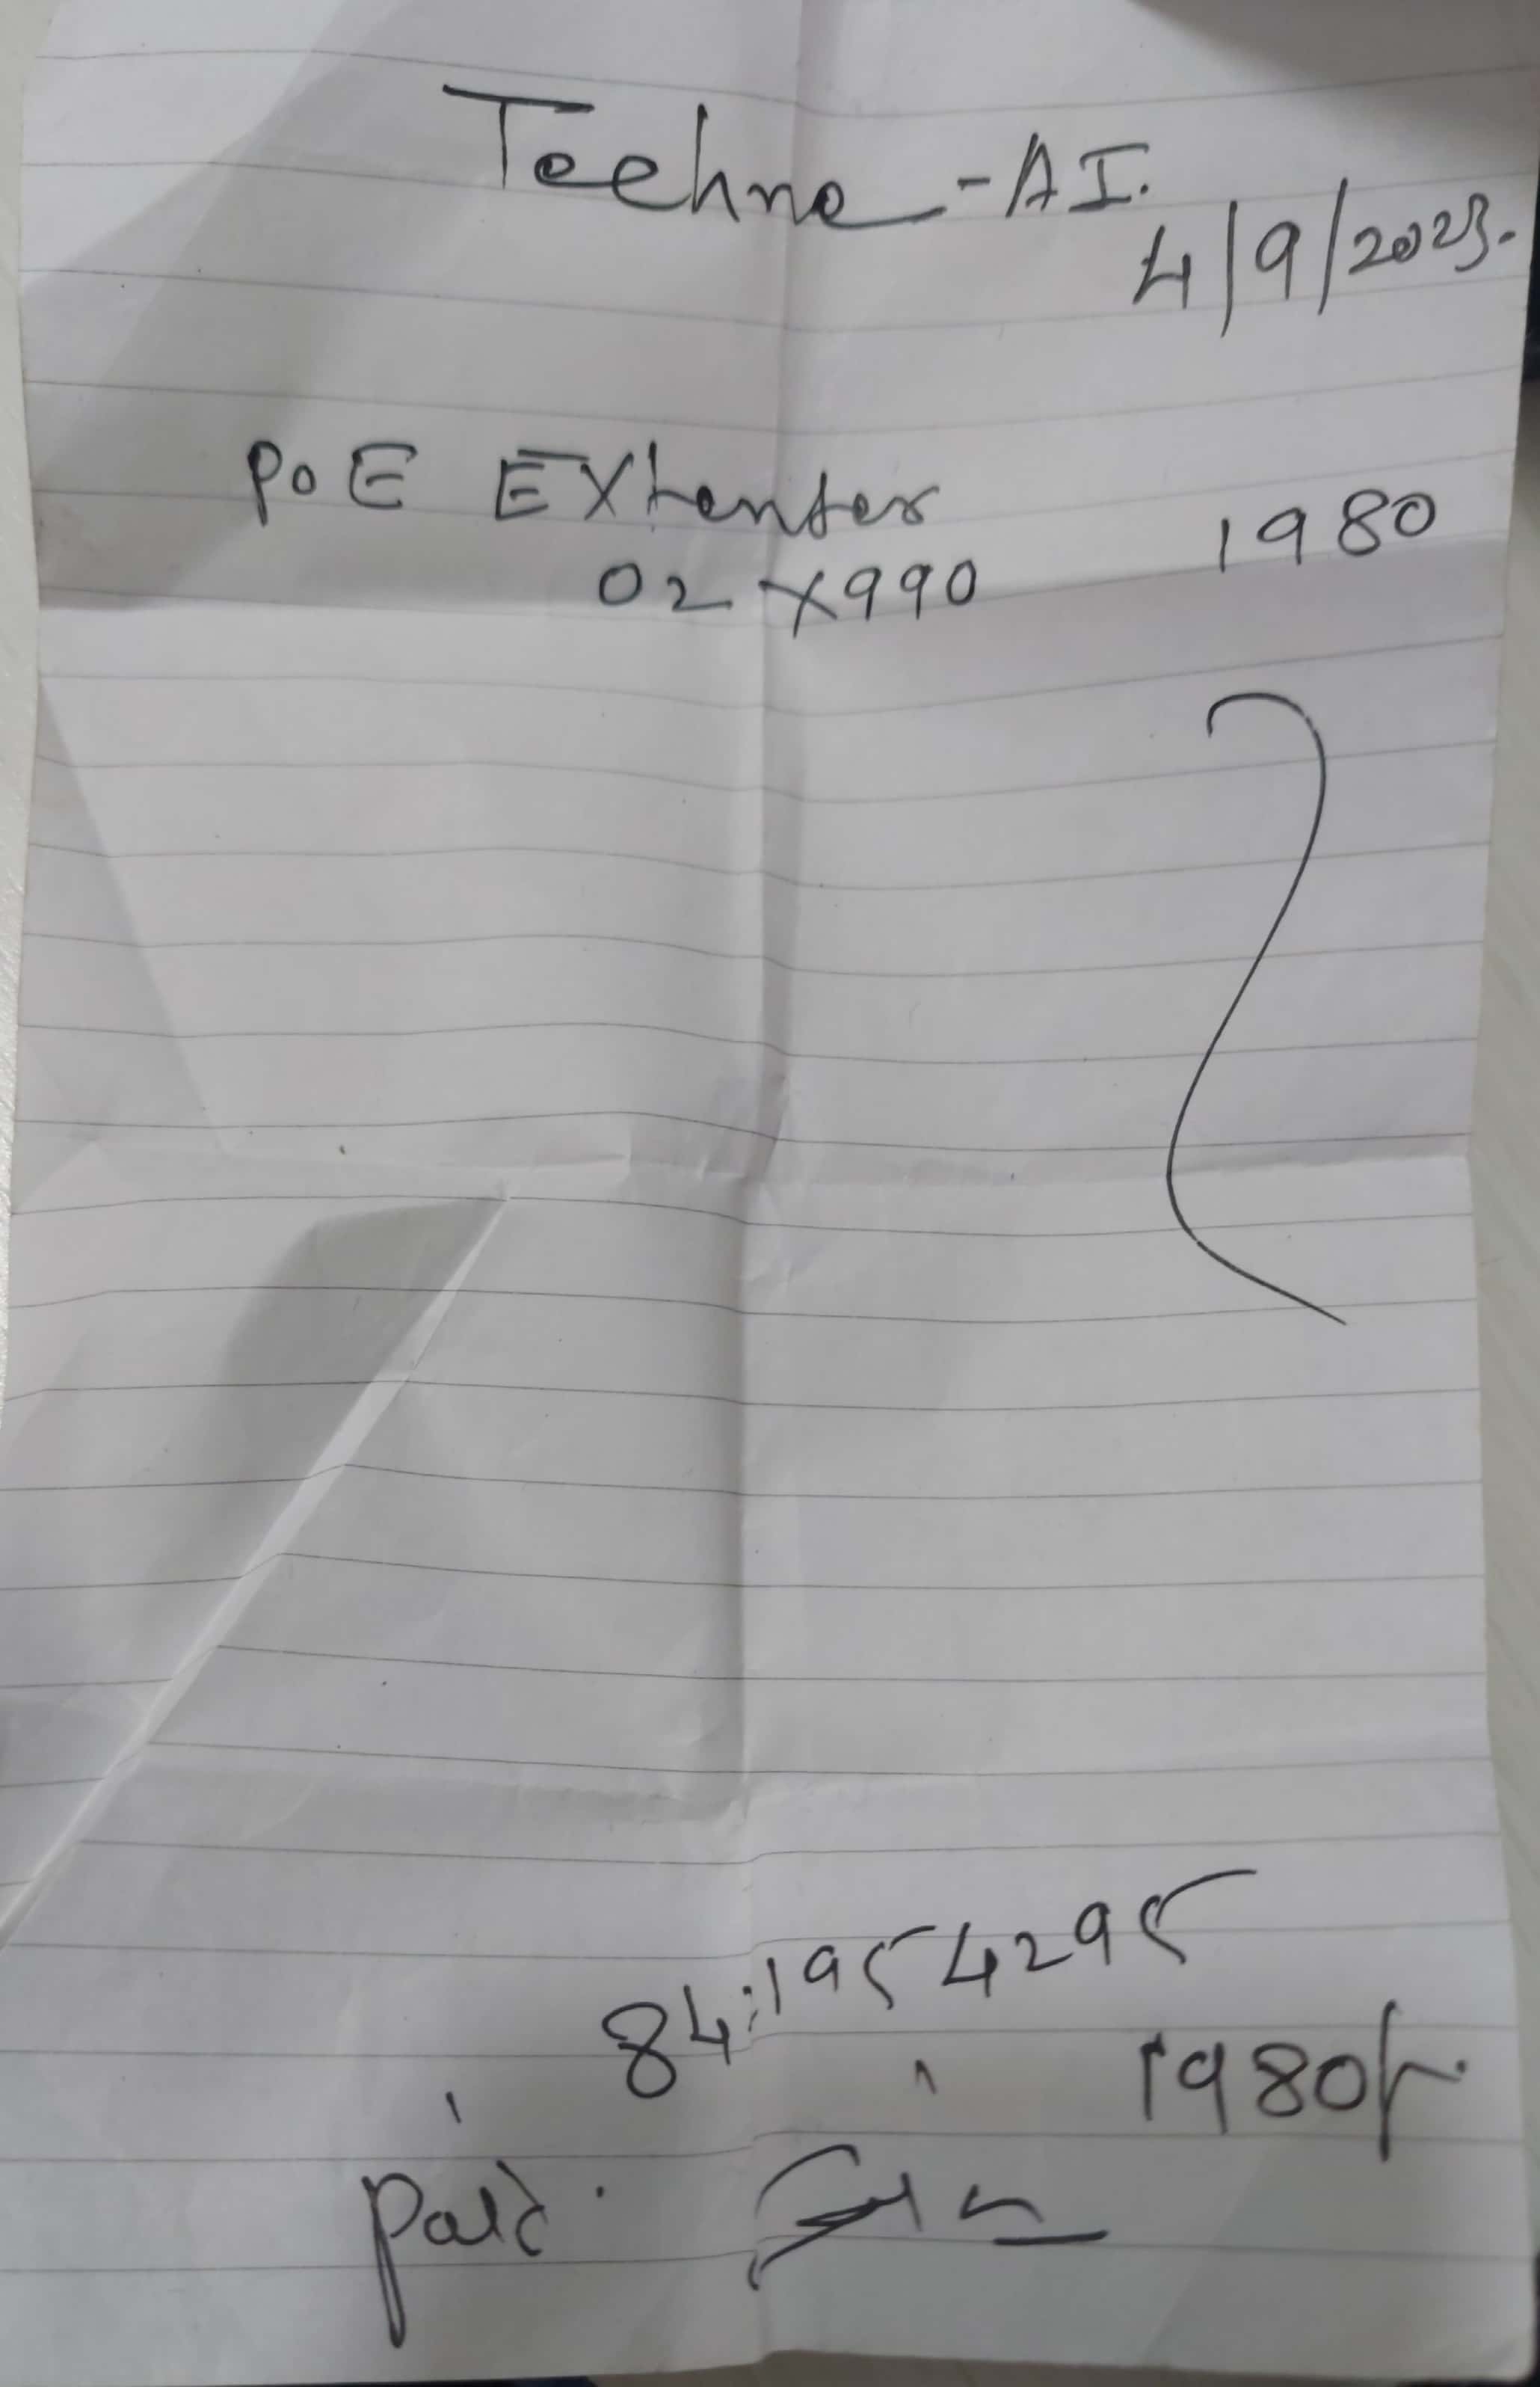 Techno-AI.
4/9/2023.
PoE EXtenter
02 X990 1980
84:1954295
1980/-
Paid.